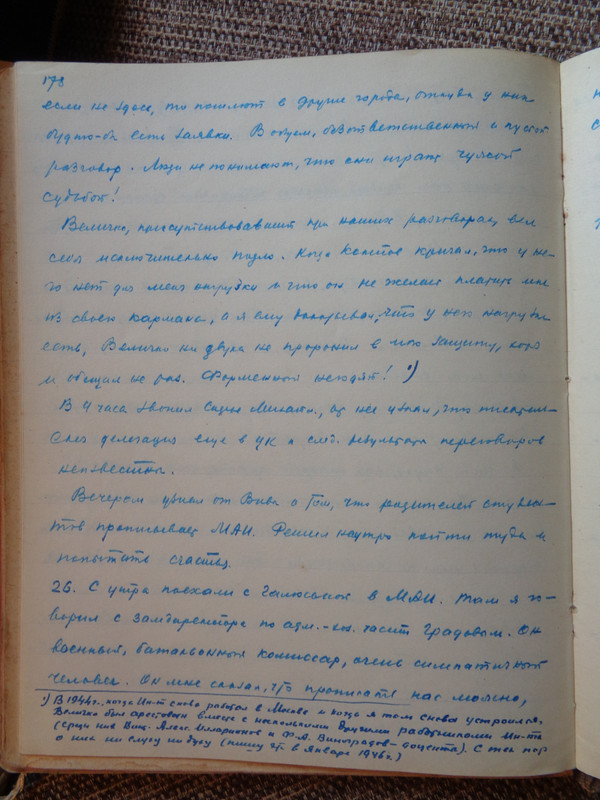 178
если не здесь, то пошлют в другие города, откуда у них
будто-бы есть заявки. В общем, безответственный и пустой
разговор. Люди не понимают, что они играют чужой
судьбой!
Величко, присутствовавший при наших разговорах, вел
себя исключительно подло. Когда кричал, что у не-
го нет для меня нагрузки и что он не желает платить мне
из своего кармана, а я ему доказывал, что у него нагрузка
есть, Величко ни звука не проронил в мою защиту, хотя
и обещал не раз. Форменный негодяй! *)
В 4 часа звонил, от нее узнал, что писатель-
ская делегация еще в ЦК и след. результаты переговоров
неизвестны.
Вечером узнал от Вовы о том, что родителей студен-
тов прописывает МАИ. Решил наутро пойти туда и
попытать счастья.
26. С утра поехали с Галюськой в МАИ. Там я го-
ворил с замдиректора по адм.-хоз. части Градовым. Он
военный, батальонный комиссар, очень симпатичный
человек. Он мне сказал, что прописать нас можно,
*) В 1944 г., когда Ин-т снова работал в Москве и когда я там снова устроился,
Величко был арестован вместе с несколькими другими работниками Ин-та
(среди них Алекс. Илларионов и Ф.А. Виноградов - доцент). С тех пор
о них ни слуху ни духу (пишу это в январе 1946 г.)